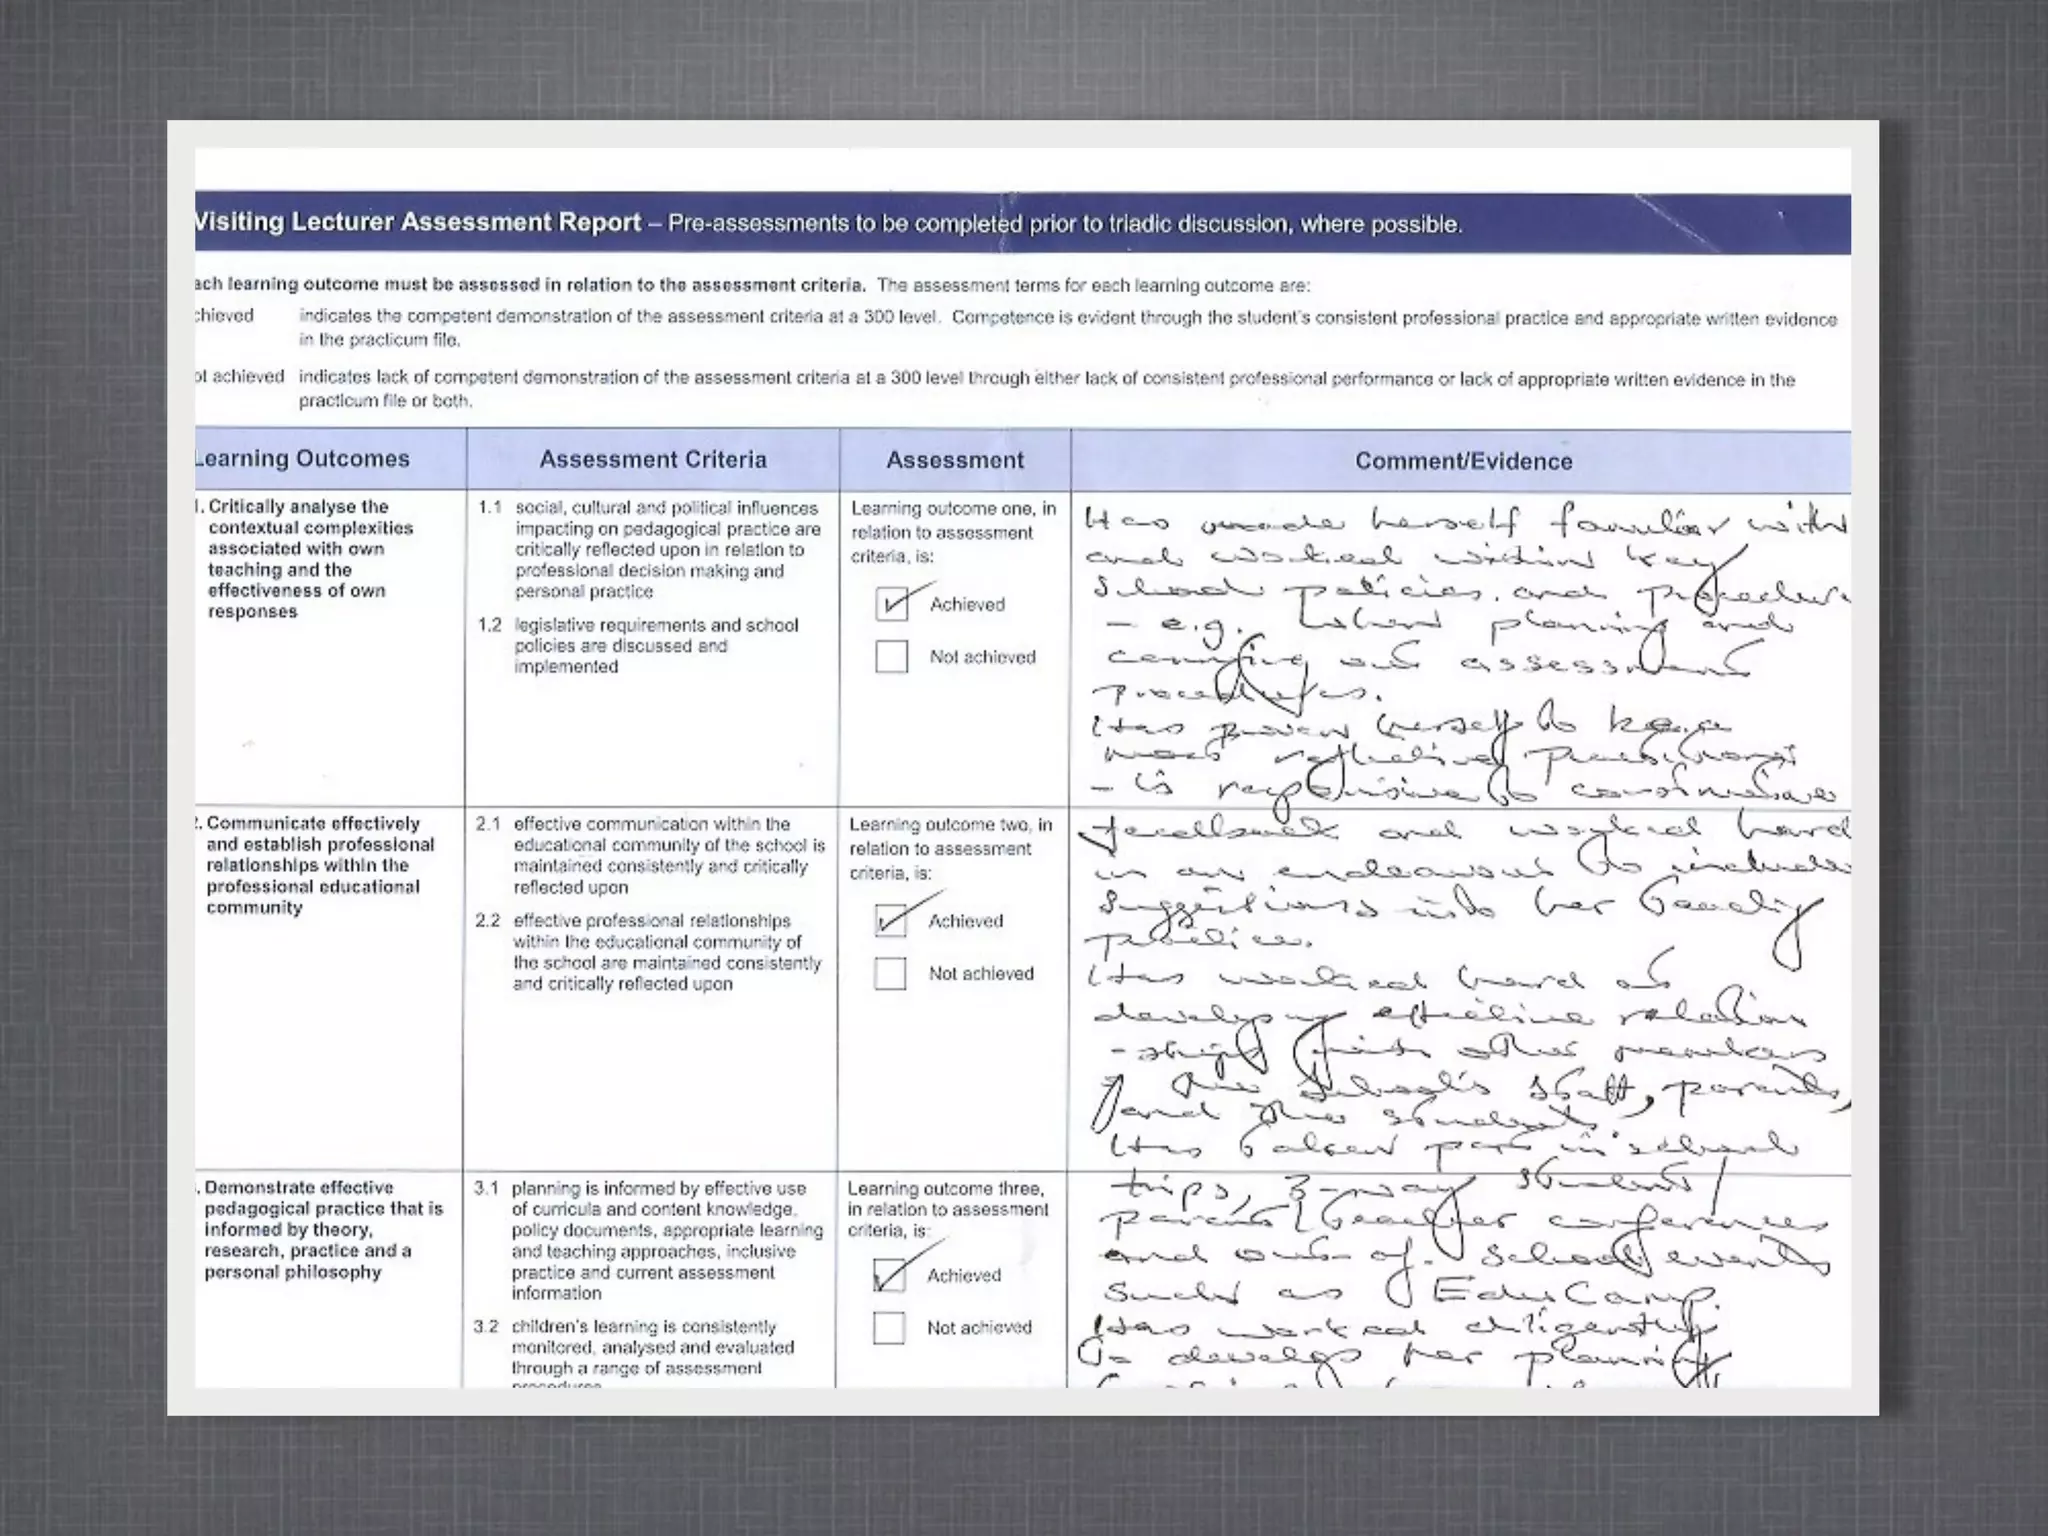 Visiting Lecturer Assessment Report – Pre-assessments to be completed prior to triadic discussion, where possible.
ach learning outcome must be assessed in relation to the assessment criteria. The assessment terms for each learning outcome are:
chieved indicates the competent demonstration of the assessment criteria at a 300 level. Competence is evident through the student's consistent professional practice and appropriate written evidence
in the practicum file.
ot achieved indicates lack of competent demonstration of the assessment criteria at a 300 level through either lack of consistent professional performance or lack of appropriate written evidence in the
practicum file or both.
Learning Outcomes
Assessment Criteria
Assessment
Comment/Evidence
1. Critically analyse the
contextual complexities
associated with own
teaching and the
effectiveness of own
responses
1.1 social, cultural and political influences
impacting on pedagogical practice are
critically reflected upon in relation to
professional decision making and
personal practice
1.2 legislative requirements and school
policies are discussed and
implemented
Learning outcome one, in
relation to assessment
criteria, is:
Achieved
Not achieved
Has made herself familiar with
and worked within key
School policies and procedure
– e.g. when planning and
carrying out assessment
procedures.
Has proven herself to be a
most reflective practitioner
– is responsive to constructive
2. Communicate effectively
and establish professional
relationships within the
professional educational
community
2.1 effective communication within the
educational community of the school is
maintained consistently and critically
reflected upon
2.2 effective professional relationships
within the educational community of
the school are maintained consistently
and critically reflected upon
Learning outcome two, in
relation to assessment
criteria, is:
Achieved
Not achieved
feedback and worked hard
in an endeavour to include
suggestions into her teaching
practice.
Has worked hard at
developing effective relation
-ships with other members
of the school's staff, parents,
and the students.
Has taken part in school
. Demonstrate effective
pedagogical practice that is
informed by theory,
research, practice and a
personal philosophy
3.1 planning is informed by effective use
of curricula and content knowledge,
policy documents, appropriate learning
and teaching approaches, inclusive
practice and current assessment
information
3.2 children's learning is consistently
monitored, analysed and evaluated
through a range of assessment
procedures
Learning outcome three,
in relation to assessment
criteria, is:
Achieved
Not achieved
trips, 3-way student/
parent/teacher conferences
and out-of-school events
such as EduCamp.
Has worked diligently
to develop her planning